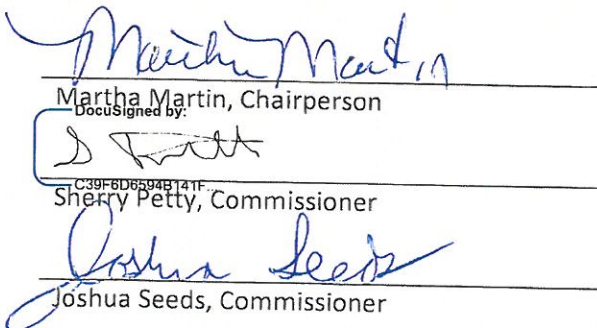 Martha Martin
Martha Martin, Chairperson
DocuSigned by:
C39F6D6594B141F...
Sherry Petty, Commissioner
Joshua Seeds
Joshua Seeds, Commissioner